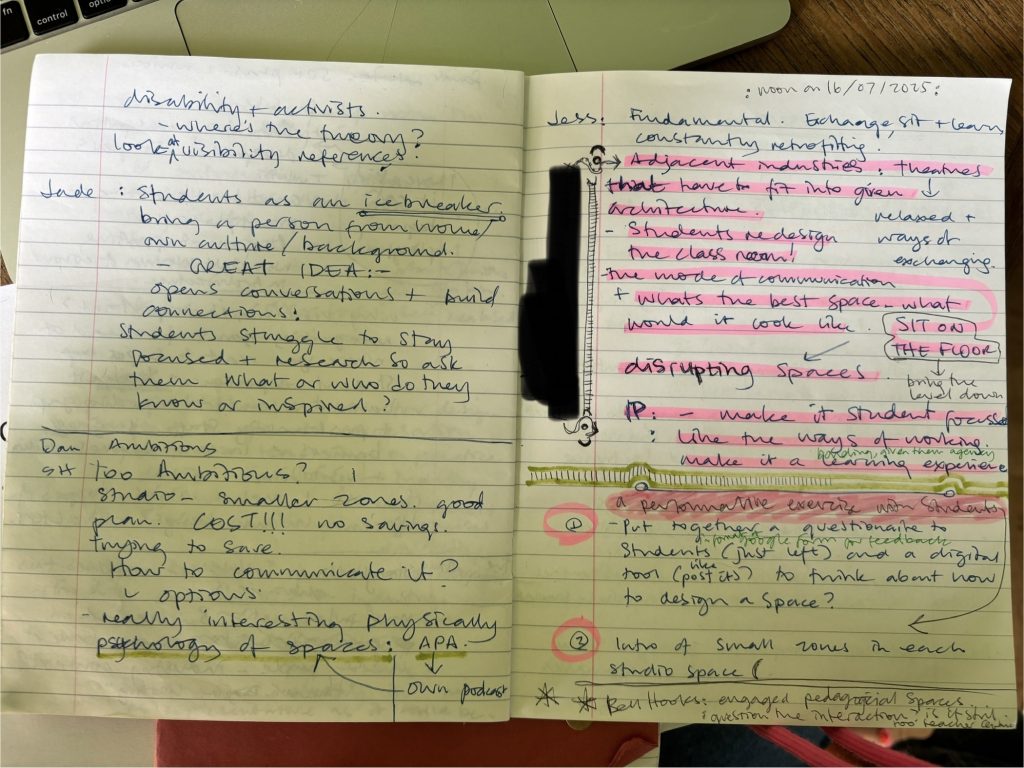 fn
control
option
disability + activists.
- where's the theory?
look at visibility references.
Jade : Students as an icebreaker
bring a person from home/
own culture/background.
- GREAT IDEA:-
opens conversations + build
connections:
Students struggle to stay
focused + research so ask
them what or who do they
know or inspired?
Dan Ambitions
SH Too Ambitions?
studio - smaller zones. good
plan. COST!!! no savings.
trying to save.
How to communicate it?
options.
- really interesting physically
psychology of spaces: APA.
own podcast
: noon on 16/07/2025:
Jess: Fundamental. Exchange, sit + learn
constantly retrofitting.
Adjacent industries: theatres
that have to fit into given
architecture.
relaxed +
ways of
exchanging.
- Students redesign
the class room!
the mode of communication
+ whats the best space - what
would it look like.
SIT ON
THE FLOOR
bring the
level down
disrupting spaces.
IP: - make it student focusse
: like the ways of working.
given them agency
make it a learning experience
a performative exercise with students
① - Put together a questionaire to
google form for feedback
students (just left) and a digital
tool (like post its) to think about how
to design a space?
② Intro of small zones in each
studio space (
Bell Hooks: engaged pedagogical spaces
: question the interaction? is it still
too teacher centric